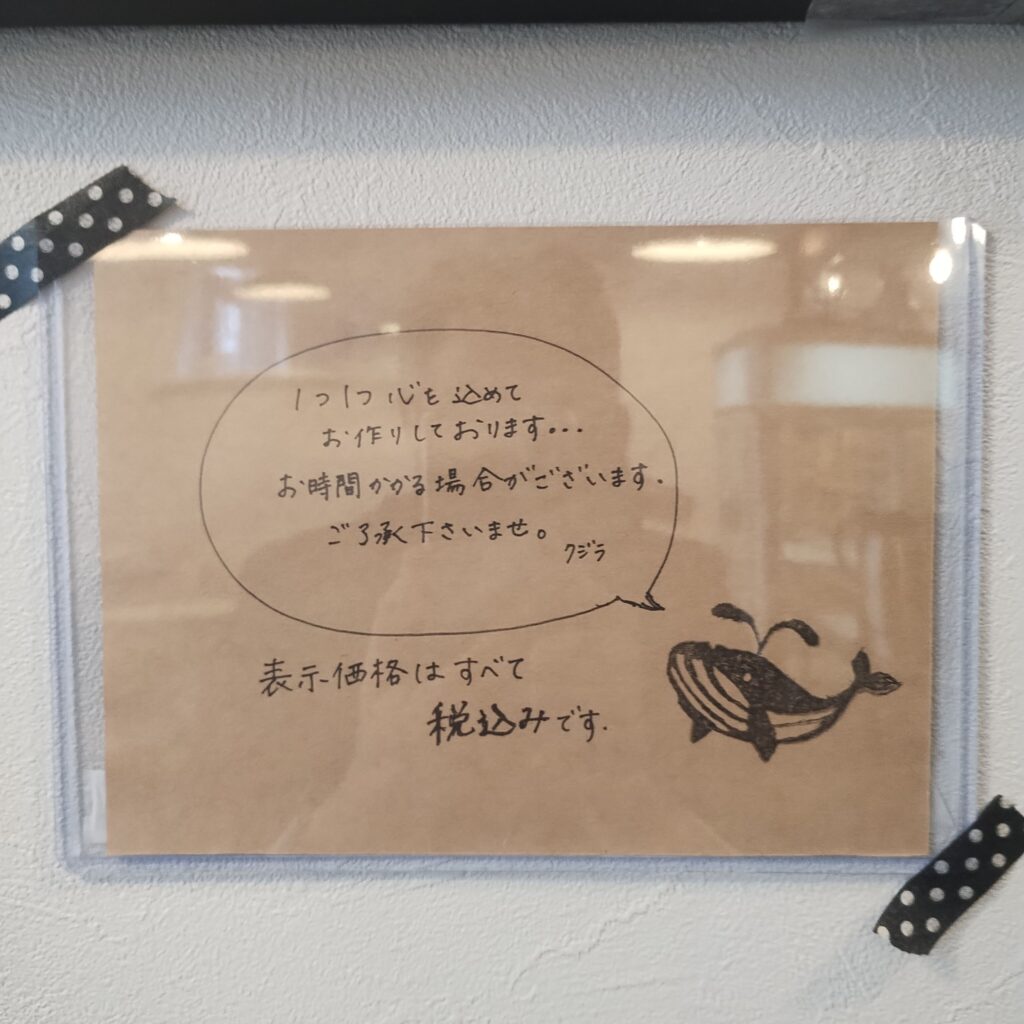 1つ1つ心を込めて
お作りしております...
お時間かかる場合がございます.
ご了承下さいませ。
クジラ
表示価格はすべて
税込みです.